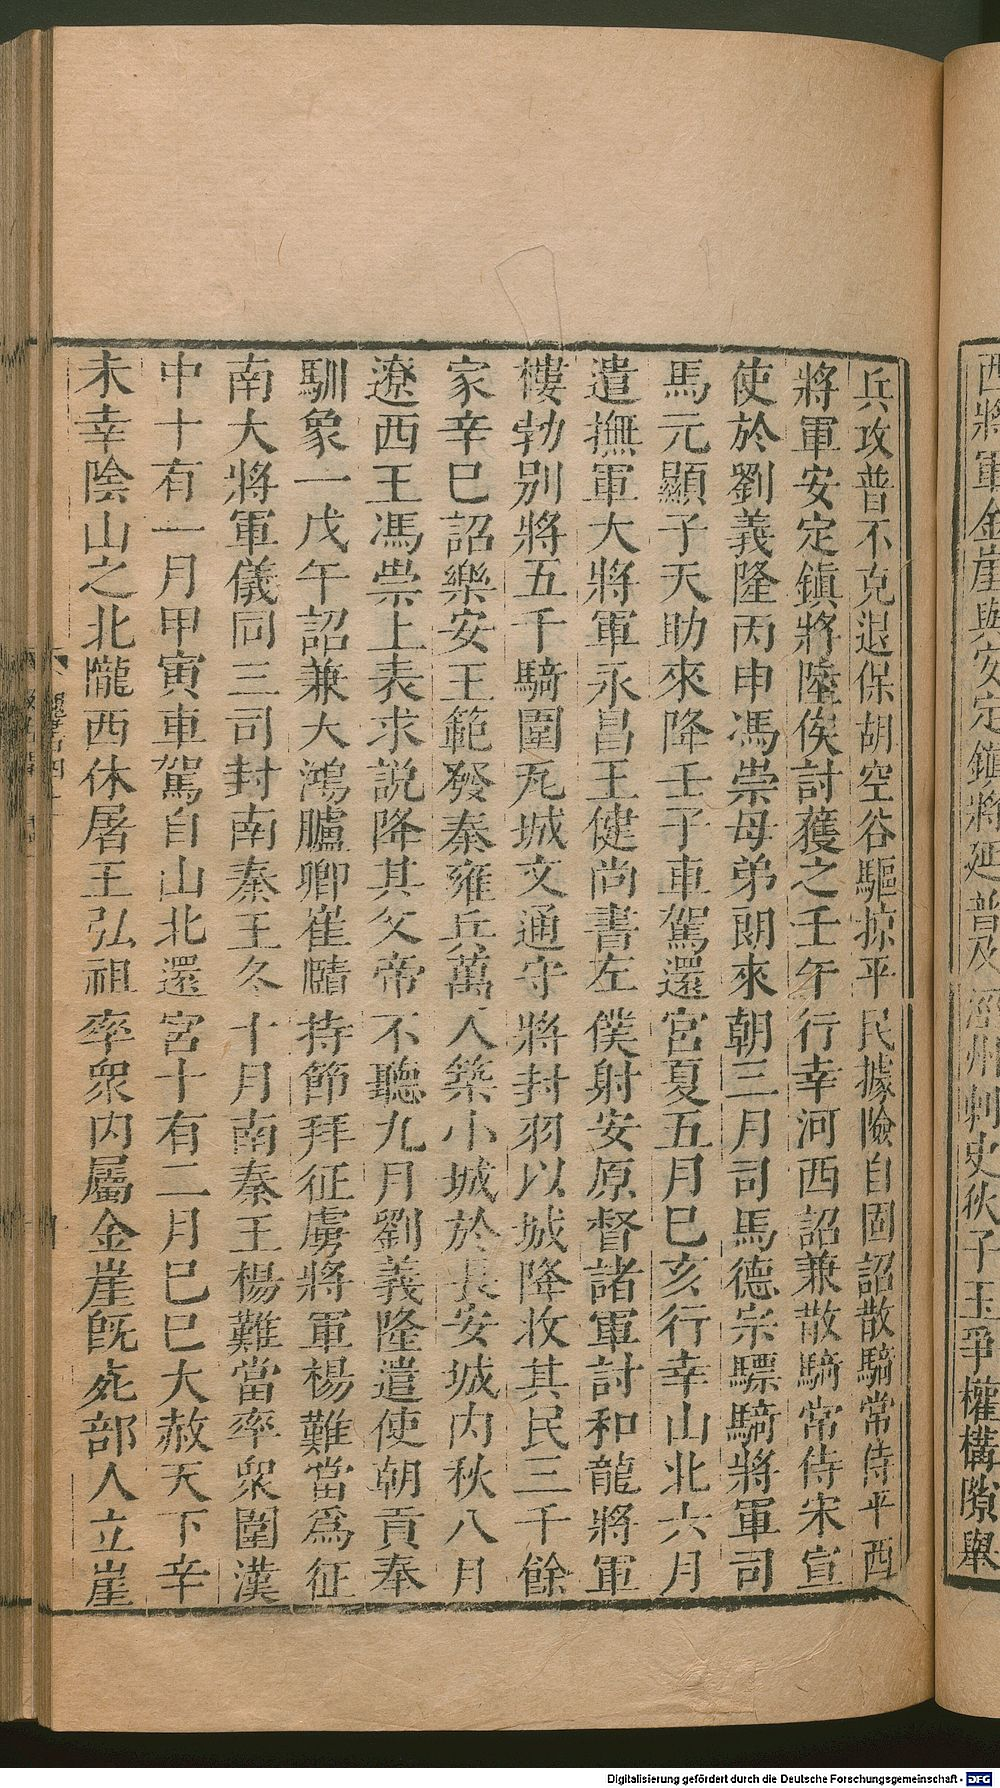 西將軍金崖與安定鎮將延普及涇州刺史狄子玉爭權構隙舉
兵攻普不克退保胡空谷驅掠平民據險自固詔散騎常侍平西
將軍安定鎮將陸俟討獲之壬午行幸河西詔兼散騎常侍宋宣
使於劉義隆丙申馮崇母弟朗來朝三月司馬德宗驃騎將軍司
馬元顯子天助來降壬子車駕還宮夏五月巳亥行幸山北六月
遣撫軍大將軍永昌王健尚書左僕射安原督諸軍討和龍將軍
樓勃别將五千騎圍凡城文通守將封羽以城降收其民三千餘
家辛巳詔樂安王範發秦雍兵萬人築小城於長安城内秋八月
遼西王馮崇上表求說降其父帝不聽九月劉義隆遣使朝貢奉
馴象一戊午詔兼大鴻臚卿崔賾持節拜征虜將軍楊難當爲征
南大將軍儀同三司封南秦王冬十月南秦王楊難當率衆圍漢
中十有一月甲寅車駕自山北還宮十有二月巳巳大赦天下辛
未幸陰山之北隴西休屠王弘祖率衆内屬金崖旣死部人立崖